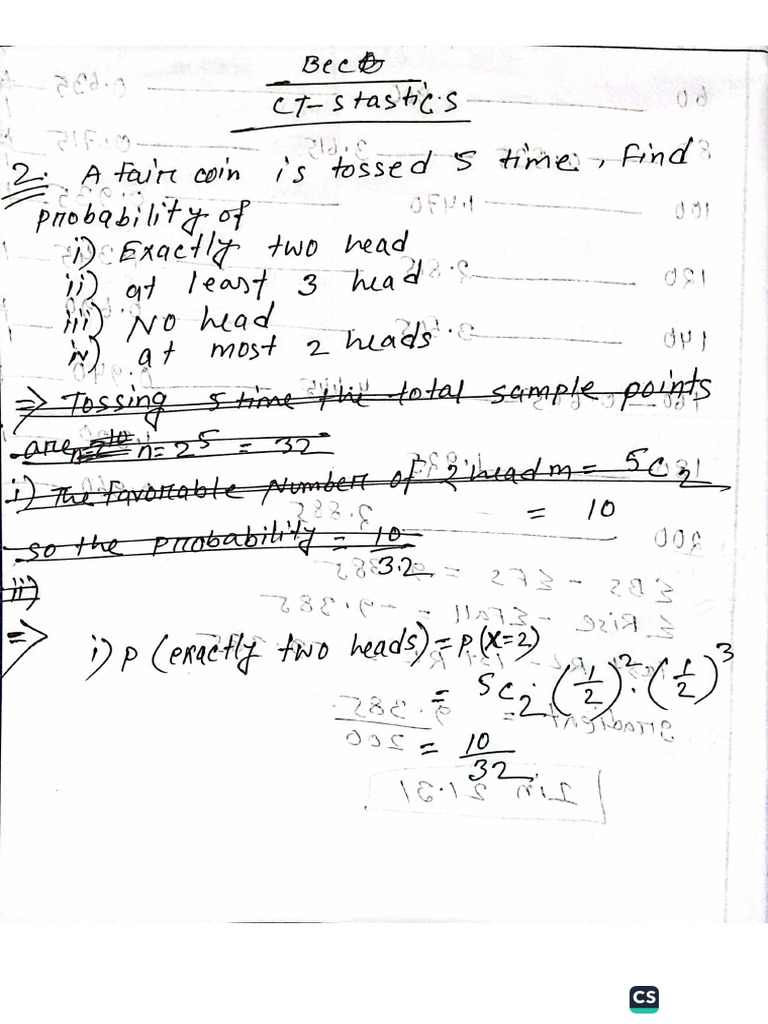 BEC
CT-Stastics
2. A fair coin is tossed 5 time, Find
probability of
i) Exactly two head
ii) at least 3 head
iii) No head
iv) at most 2 heads
=> Tossing 5 time the total sample points
are n = 2^5 = 32
i) The favorable Number of 2 head m = 5C2
= 10
so the probability = 10/32
ii)
=> i) P (exactly two heads) = P(X=2)
= 5C2 · (1/2)^2 · (1/2)^3
= 10/32
CS